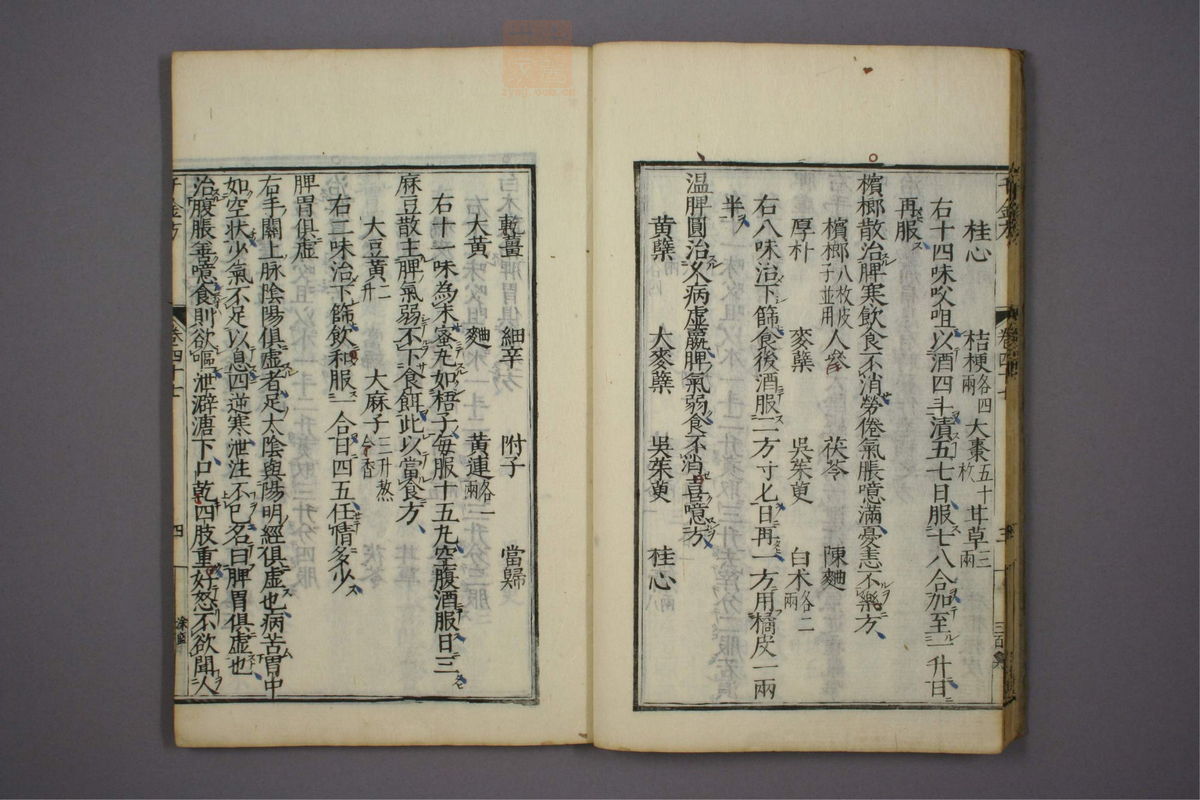 桂心 桔梗各四兩 大棗五十枚 甘草三兩
右十四味㕮咀以酒四斗漬五七日服七八合加至一升日
再服
檳榔散治脾寒飲食不消勞倦氣脹噫滿憂恚不樂方
檳榔八枚皮子並用 人參 茯苓 陳麯
厚朴 麥蘗 吳茱萸 白朮各二兩
右八味治下篩食後酒服二方寸匕日再一方用橘皮一兩
半
溫脾圓治久病虛羸脾氣弱食不消喜噫方
黃蘗 大麥蘗 吳茱萸 桂心
乾薑 細辛 附子 當歸
大黃 麯 黃連各一兩
右十一味為末蜜丸如梧子每服十五丸空腹酒服日三
麻豆散主脾氣弱不下食餌此以當食方
大豆黃二升 大麻子三升熬令香
右二味治下篩飲和服一合日四五任情多少
脾胃俱虛
右手關上脉陰陽俱虛者足太陰與陽明經俱虛也病苦胃中
如空狀少氣不足以息四逆寒泄注不已名曰脾胃俱虛也
治腹脹善噫食則欲嘔泄澼溏下口乾四肢重好怒不欲聞人
卷四十七
四